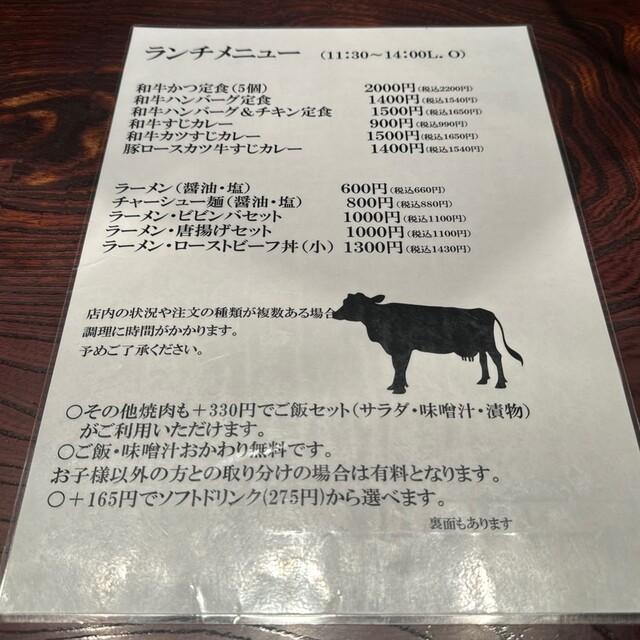 ランチメニュー (11:30～14:00L.O)
和牛かつ定食(5個) 2000円(税込2200円)
和牛ハンバーグ定食 1400円(税込1540円)
和牛ハンバーグ&チキン定食 1500円(税込1650円)
和牛すじカレー 900円(税込990円)
和牛カツすじカレー 1500円(税込1650円)
豚ロースカツ牛すじカレー 1400円(税込1540円)
ラーメン(醤油・塩) 600円(税込660円)
チャーシュー麺(醤油・塩) 800円(税込880円)
ラーメン・ビビンバセット 1000円(税込1100円)
ラーメン・唐揚げセット 1000円(税込1100円)
ラーメン・ローストビーフ丼(小) 1300円(税込1430円)
店内の状況や注文の種類が複数ある場合
調理に時間がかかります。
予めご了承ください。
○その他焼肉も+330円でご飯セット(サラダ・味噌汁・漬物)
がご利用いただけます。
○ご飯・味噌汁おかわり無料です。
お子様以外の方との取り分けの場合は有料となります。
○+165円でソフトドリンク(275円)から選べます。
裏面もあります